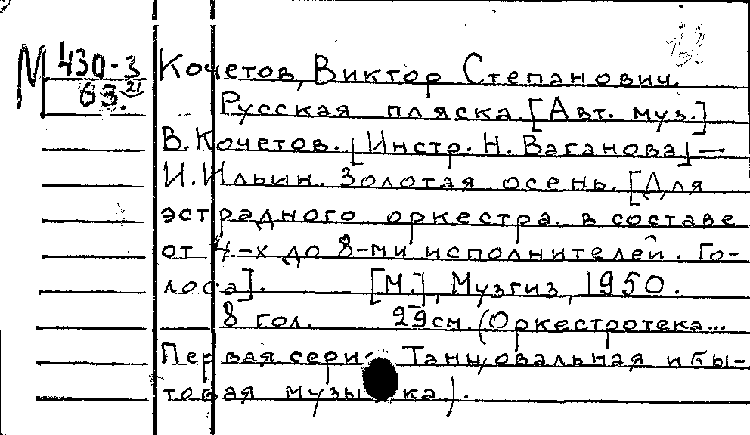 М 430-3 Кочетов, Виктор Степанович.
63. 21 Русская пляска. [Авт. муз.]
В. Кочетов. [Инстр. Н. Ваганова] —
И. Ильин. Золотая осень. [Для
эстрадного оркестра в составе
от 4-х до 8-ми исполнителей. Го-
лоса]. [М.], Музгиз, 1950.
8 гол. 29 см. (Оркестротека...
Первая серия. Танцовальная и бы-
товая музыка).